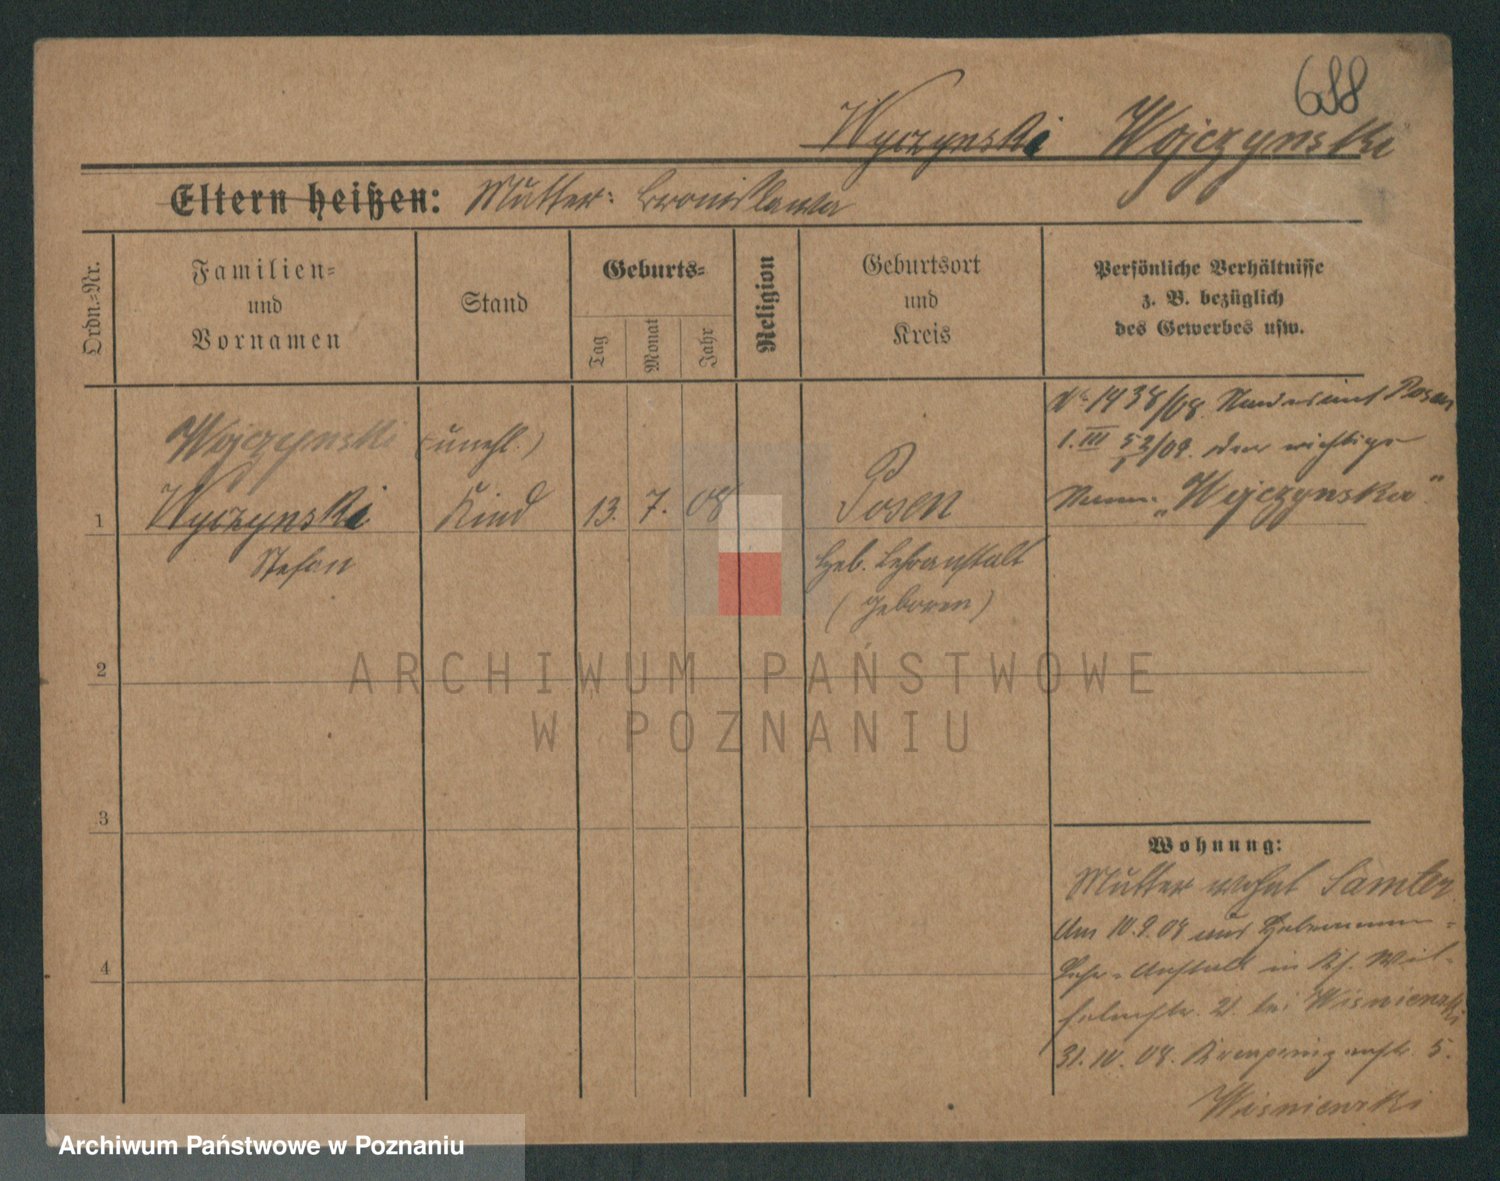 688
Wyczynski Wojczynski
Eltern heißen: Mutter: Bronislawa
Ordn.-Nr.
Familien-
und
Vornamen
Stand
Geburts-
Tag
Monat
Jahr
Religion
Geburtsort
und
Kreis
Persönliche Verhältnisse
z. B. bezüglich
des Gewerbes usw.
Nr. 1438/08. Posen
1. III 52/08. der richtige
Name: „Wojczynska"
Wojczynski (unehl.)
1 Wyczynski Kind 13. 7. 08 Posen
Stefan Heb. Lehranstalt
(geboren)
2
3
4
ARCHIWUM PAŃSTWOWE
W POZNANIU
Wohnung:
Mutter wohnt Samter
Am 10.9.08 aus Hebammen-
Lehr-Anstalt in Kl. Wil-
helmstr. 2. bei Wisniewski
31.10.08. Kronprinzenstr. 5.
Wisniewski
Archiwum Państwowe w Poznaniu